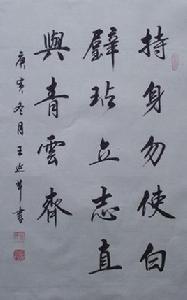 持身勿使白
璧玷立志直
與青雲齊
庚寅冬月王延軍書